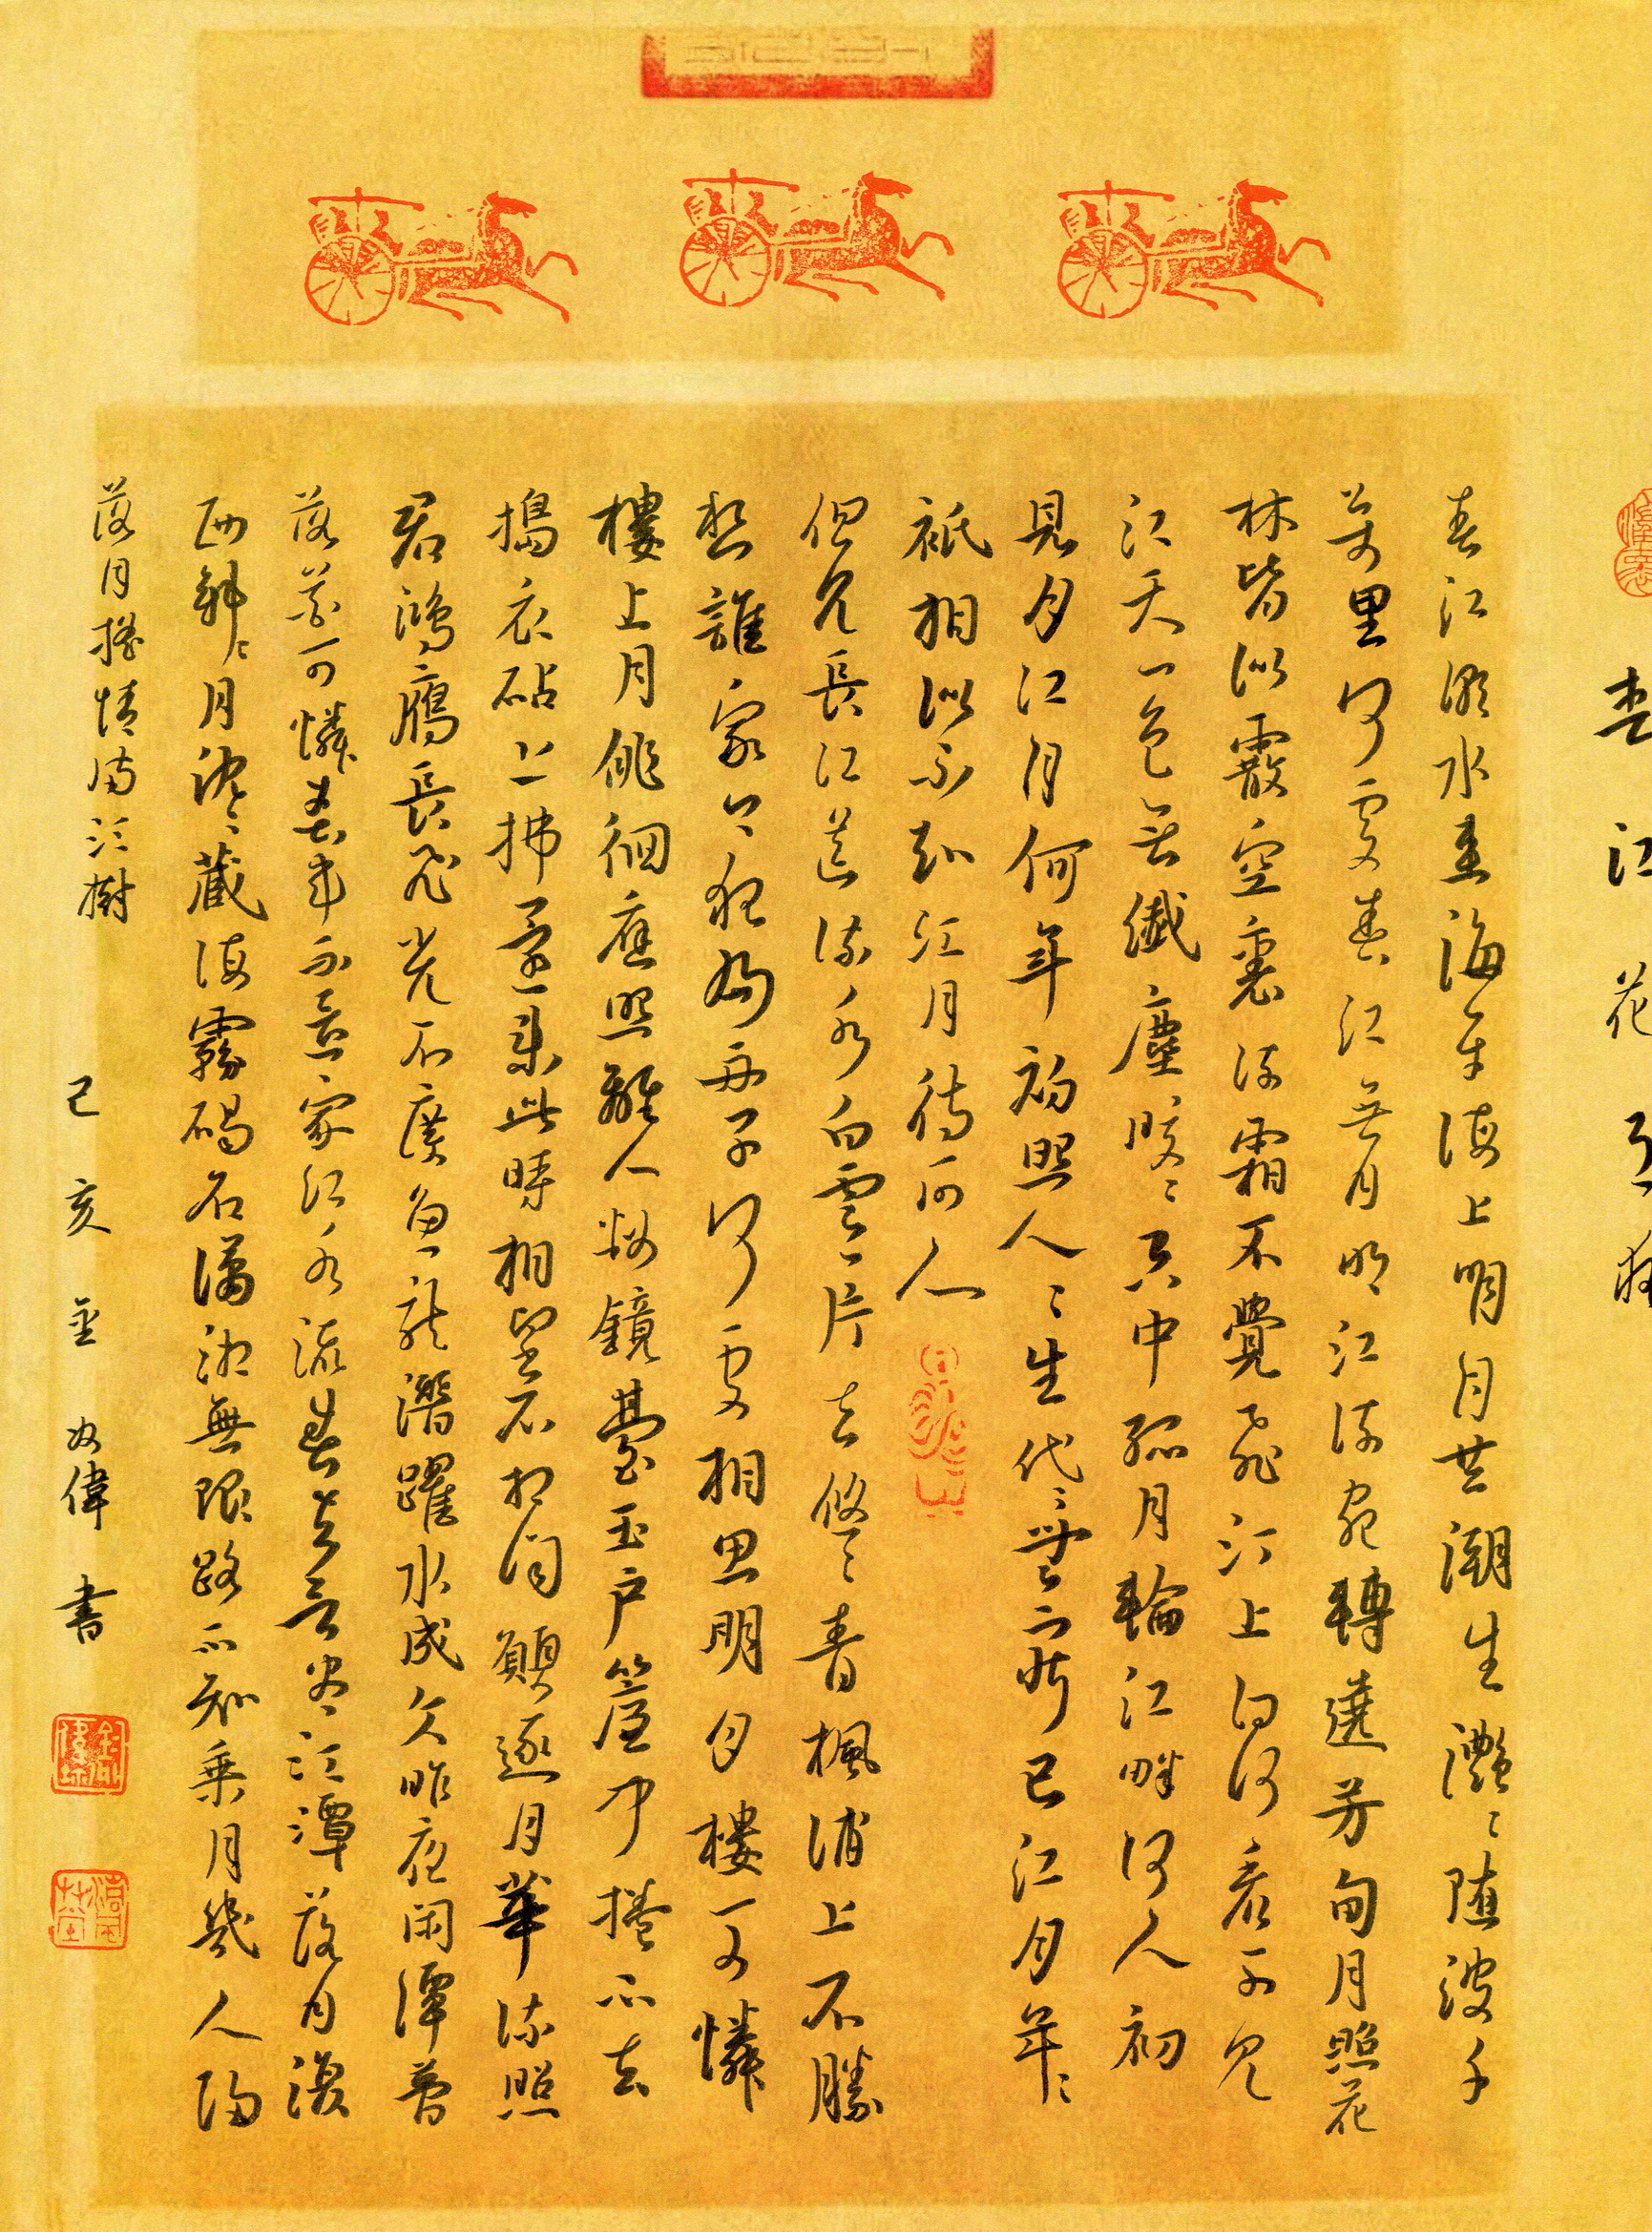 春江花月夜
春江潮水連海平海上明月共潮生灩〻随波千
萬里何處春江無月明江流宛轉遶芳甸月照花
林皆似霰空裏流霜不覺飛汀上白沙看不見
江天一色無纖塵皎〻空中孤月輪江畔何人初
見月江月何年初照人〻生代〻無窮已江月年〻
祇相似不知江月待何人
但見長江送流水白雲一片去悠〻青楓浦上不勝
愁誰家今夜扁舟子何處相思明月樓可憐
樓上月徘徊應照離人妝鏡臺玉户簾中捲不去
擣衣砧上拂還來此時相望不相聞願逐月華流照
君鴻雁長飛光不度魚龍潛躍水成文昨夜閑潭夢
落花可憐春半不還家江水流春去欲盡江潭落月復
西斜〻月沉〻藏海霧碣石瀟湘無限路不知乘月幾人歸
落月搖情滿江樹
己亥 金 偉書